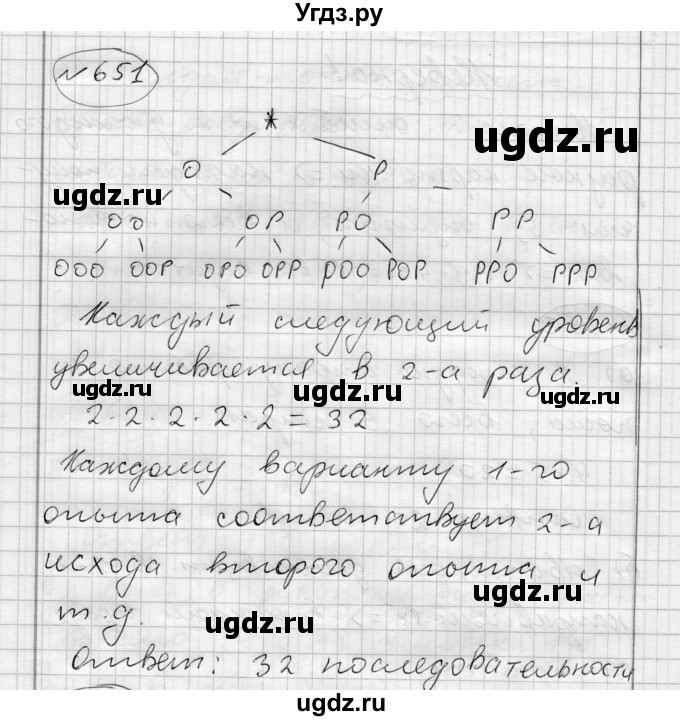 Угдз.ру
№ 651
ugdz.ru
*
О Р
ugdz.ru
ОО ОР РО РР
ugdz.ru
ООО ООР ОРО ОРР РОО РОР РРО РРР
Каждый следующий уровень
увеличивается в 2-а раза.
ugdz.ru ugdz.ru
2·2·2·2·2 = 32
Каждому варианту 1-го
опыта соответствует 2-а
исхода второго опыта и
ugdz.ru
т.д.
ugdz.ru
Ответ: 32 последовательности
ugdz.ru
ugdz.ru